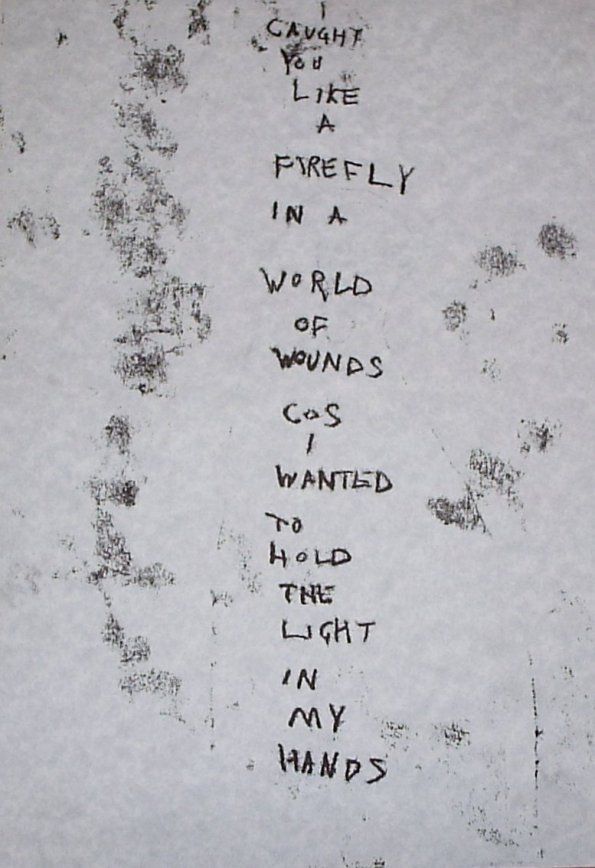 I
CAUGHT
YOU
LIKE
A
FIREFLY
IN A
WORLD
OF
WOUNDS
COS
I
WANTED
TO
HOLD
THE
LIGHT
IN
MY
HANDS